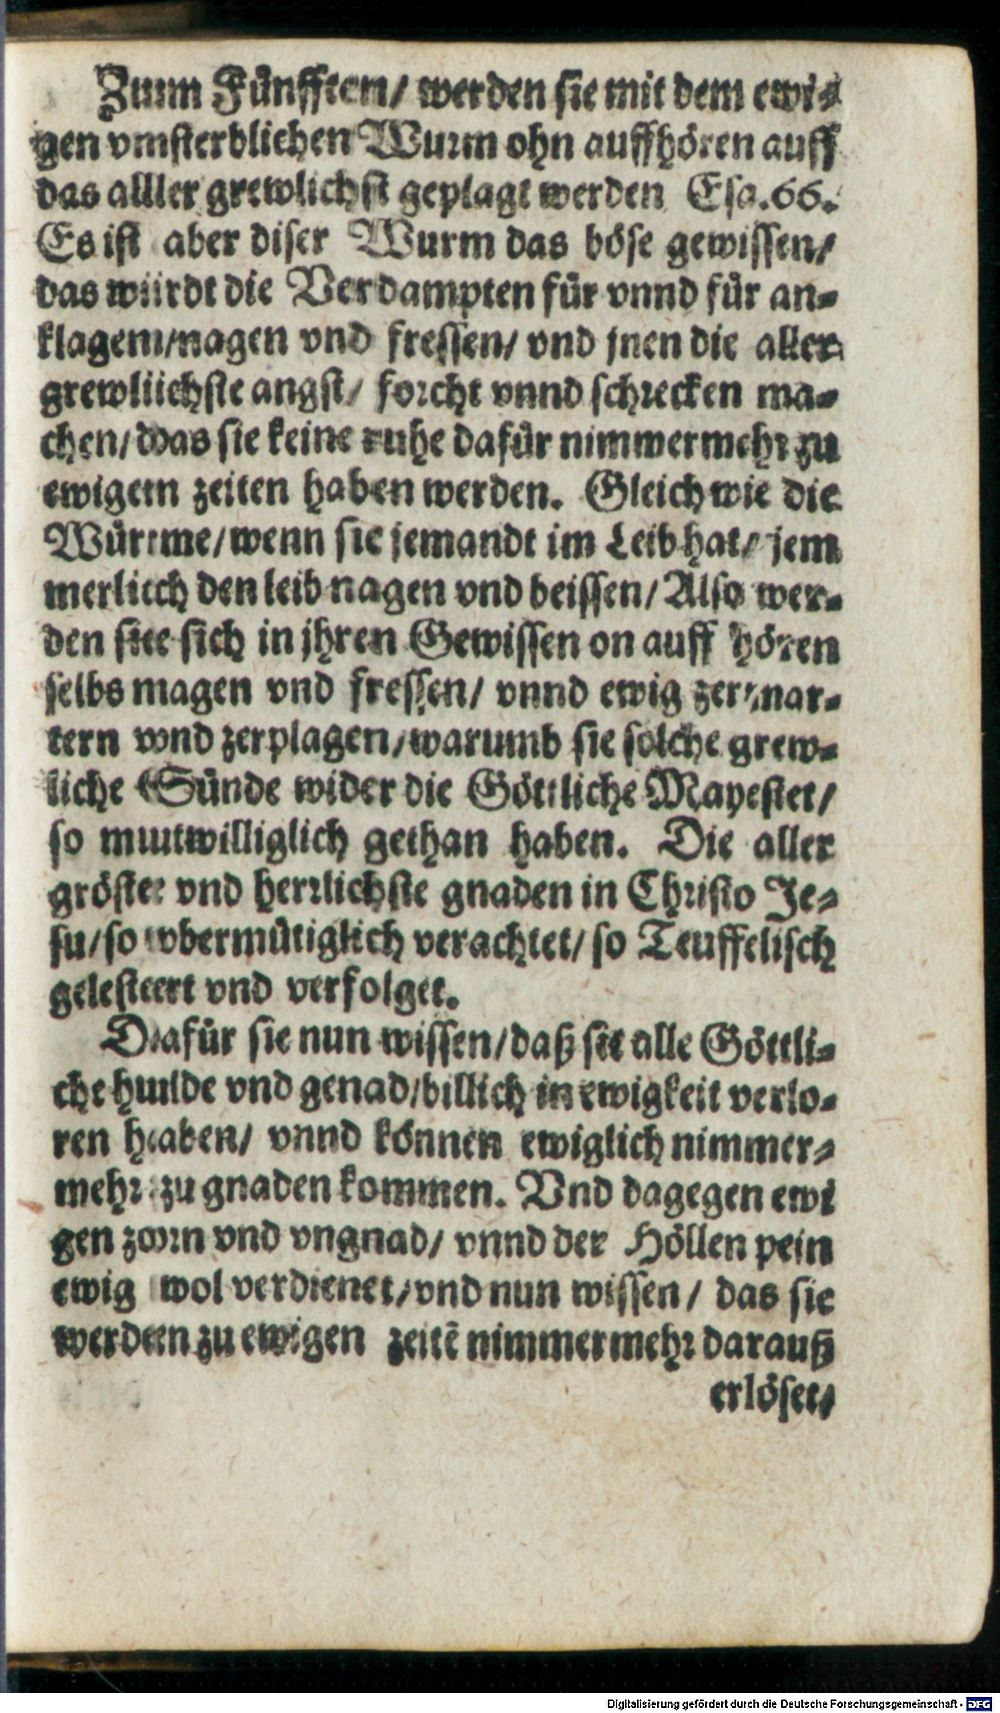 Zum Fünfften/ werden sie mit dem ewi-
gen vnsterblichen Wurm ohn auffhören auff
das aller grewlichst geplagt werden Esa. 66.
Es ist aber diser Wurm das böse gewissen/
das würdt die Verdampten für vnnd für an-
klagen/nagen vnd fressen/ vnd jnen die aller
grewlichste angst/ forcht vnnd schrecken ma-
chen/ das sie keine ruhe dafür nimmermehr zu
ewigen zeiten haben werden. Gleich wie die
Würme/ wenn sie jemandt im Leib hat/ jem
merlich den leib nagen vnd beissen/ Also wer-
den sie sich in jhren Gewissen on auff hören
selbs nagen vnd fressen/ vnnd ewig zermar-
tern vnd zerplagen/warumb sie solche grew-
liche Sünde wider die Göttliche Mayestet/
so mutwilliglich gethan haben. Die aller
gröste vnd herrlichste gnaden in Christo Je-
su/ so vbermütiglich verachtet/ so Teuffelisch
gelestert vnd verfolget.
Dafür sie nun wissen/ daß sie alle Göttli-
che hulde vnd genad/billich in ewigkeit verlo-
ren haben/ vnnd können ewiglich nimmer-
mehr zu gnaden kommen. Vnd dagegen ewi
gen zorn vnd vngnad/ vnnd der Höllen pein
ewig wol verdienet/vnd nun wissen/ das sie
werden zu ewigen zeitẽ nimmermehr darauß
erlöset/
Digitalisierung gefördert durch die Deutsche Forschungsgemeinschaft - DFG